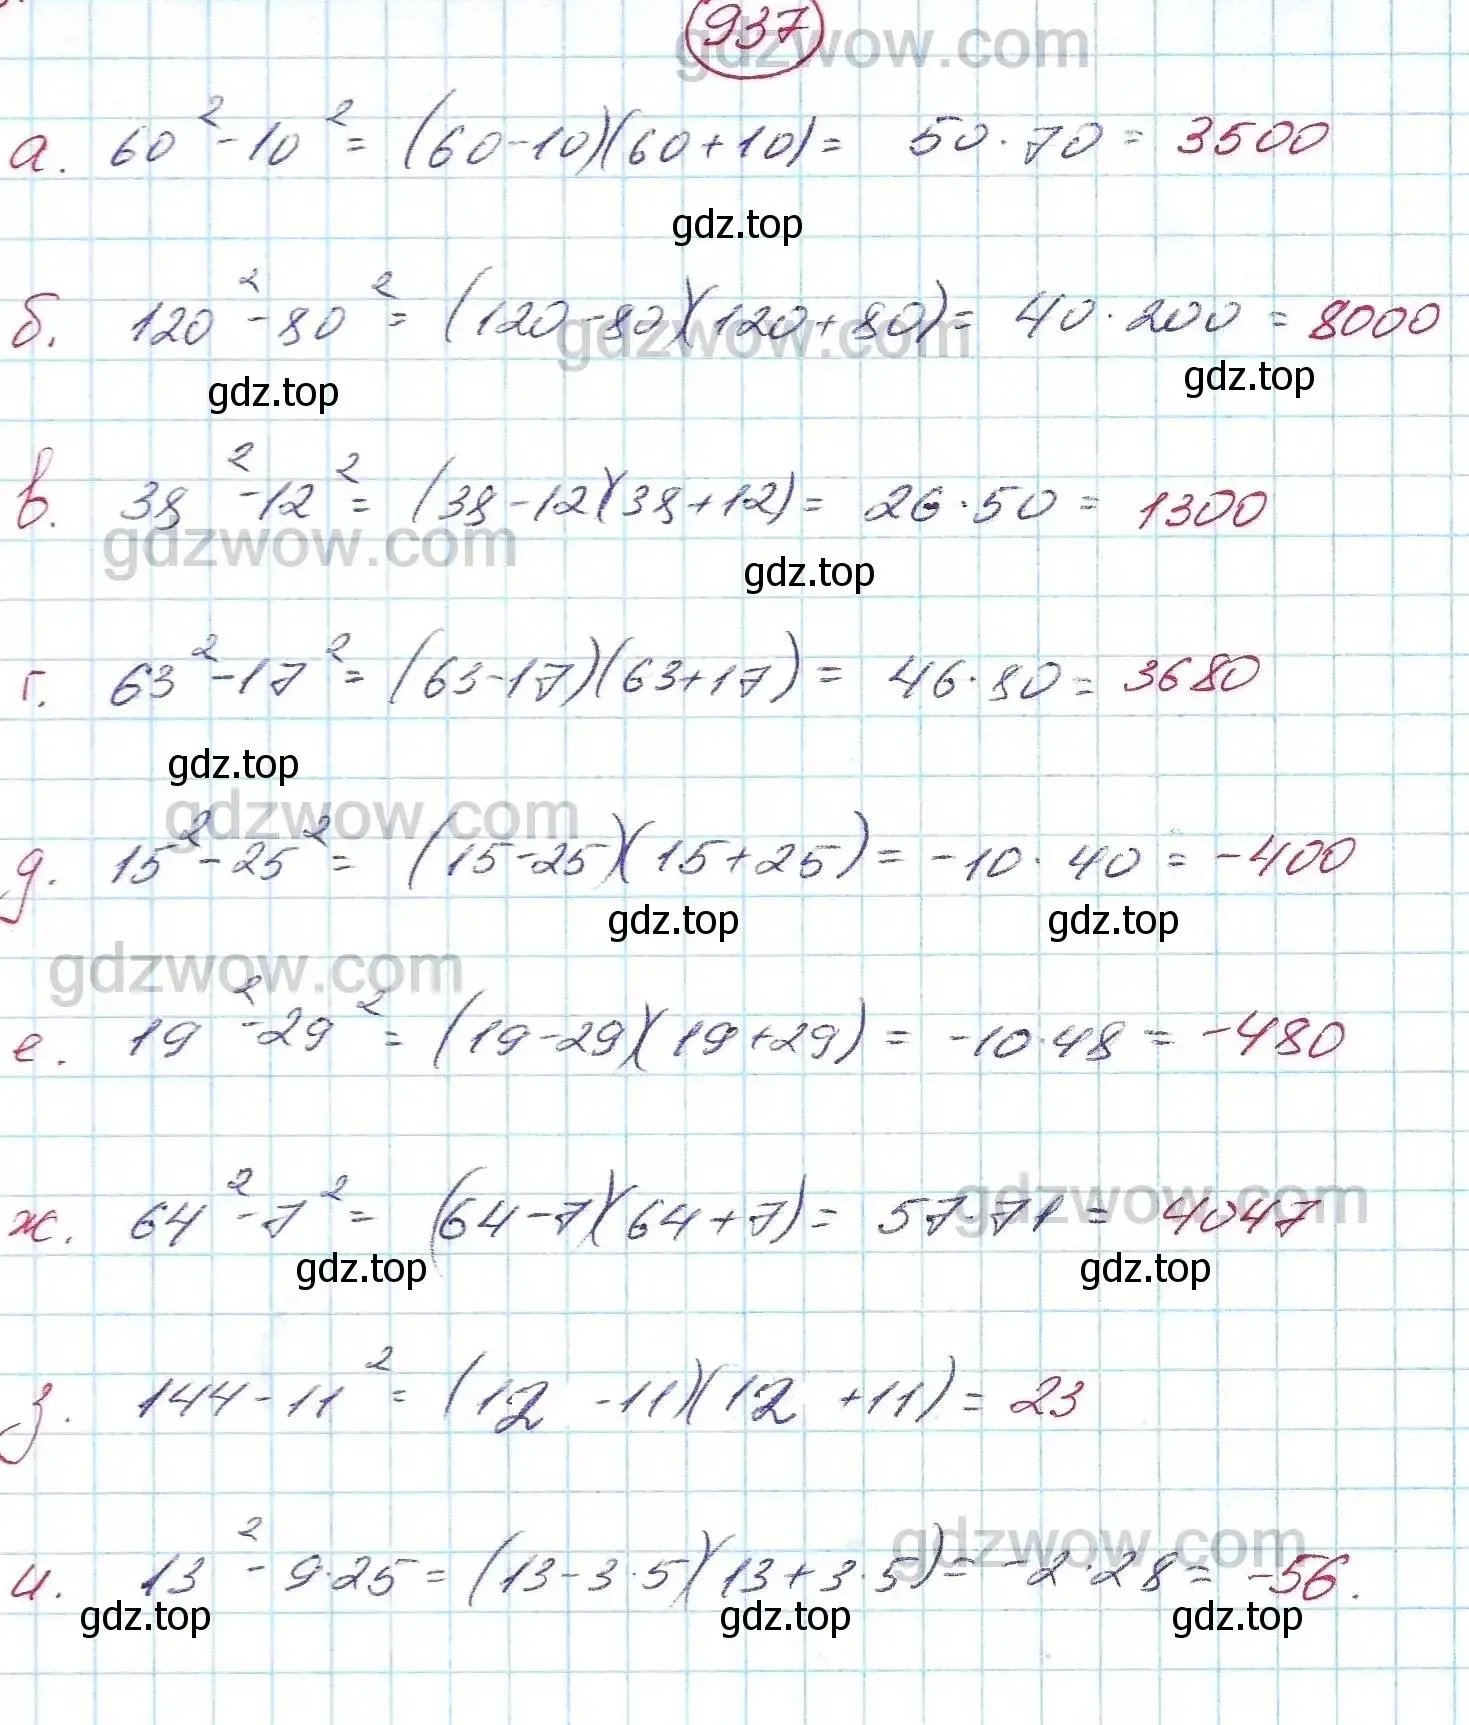 937
gdzwow.com
а. 60² - 10² = (60-10)(60+10) = 50·70 = 3500
gdz.top
б. 120² - 80² = (120-80)(120+80) = 40·200 = 8000
gdzwow.com
gdz.top gdz.top
в. 38² - 12² = (38-12)(38+12) = 26·50 = 1300
gdzwow.com
gdz.top
г. 63² - 17² = (63-17)(63+17) = 46·80 = 3680
gdz.top
gdzwow.com
д. 15² - 25² = (15-25)(15+25) = -10·40 = -400
gdz.top gdz.top
gdzwow.com
е. 19² - 29² = (19-29)(19+29) = -10·48 = -480
gdzwow.com
ж. 64² - 7² = (64-7)(64+7) = 57·71 = 4047
gdz.top gdz.top
з. 144 - 11² = (12 - 11)(12 + 11) = 23
gdzwow.com
и. 13² - 9·25 = (13-3·5)(13+3·5) = -2·28 = -56.
gdz.top gdz.top gdz.top